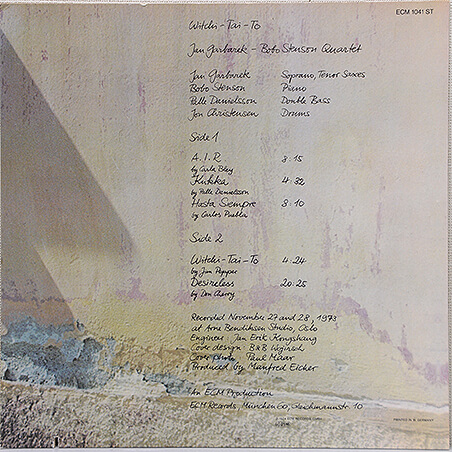 ECM 1041 ST
Witchi-Tai-To
Jan Garbarek - Bobo Stenson Quartet
Jan Garbarek Soprano, Tenor Saxes
Bobo Stenson Piano
Palle Danielsson Double Bass
Jon Christensen Drums
Side 1
A.I.R. 8:15
by Carla Bley
Kukka 4:32
by Palle Danielsson
Hasta Siempre 8:10
by Carlos Puebla
Side 2
Witchi-Tai-To 4:24
by Jim Pepper
Desireless 20:25
by Don Cherry
Recorded November 27 and 28, 1973
at Arne Bendiksen Studio, Oslo
Engineer Jan Erik Kongshaug
Cover design B&B Wojirsch
Cover photo Paul Maar
Produced by Manfred Eicher
An ECM Production
ECM Records, München 60, Gleichmannstr. 10
PRINTED IN W. GERMANY